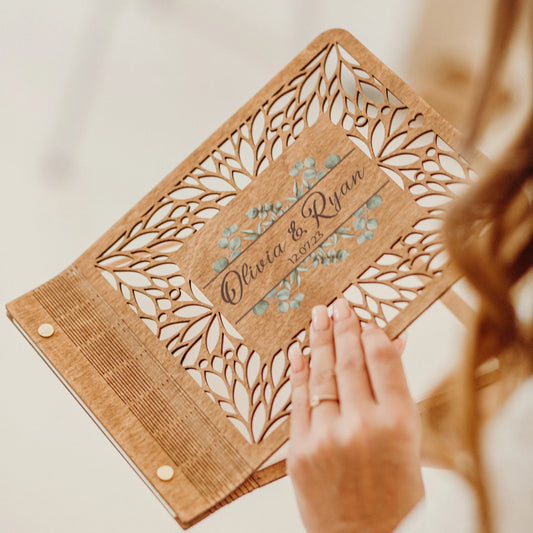 Olivia & Ryan
12.07.23